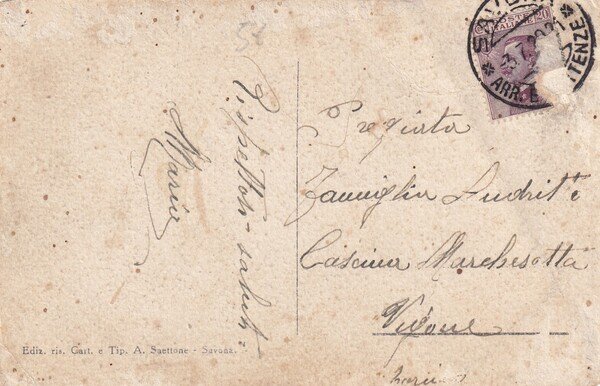 52
Rispettosi saluti
Maria
Pregiata
Famiglia Audritte
Cascina Marchesotta
Vigone
Ediz. ris. Cart. e Tip. A. Saettone - Savona.
SAVONA
ARR. E PARTENZE